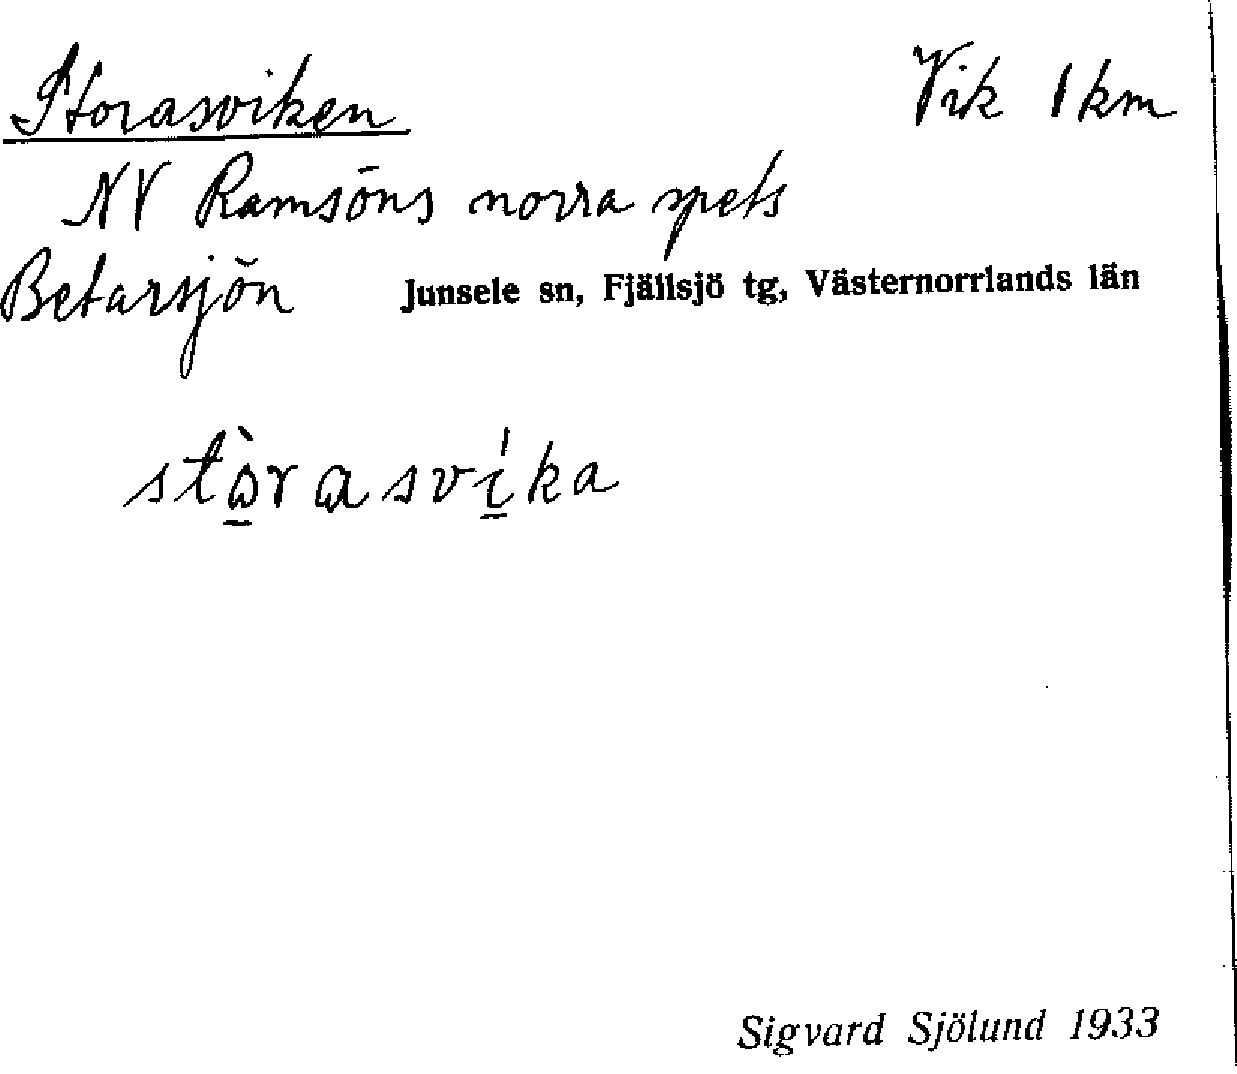 Storasviken Vik 1 km
NV Ramsöns norra spets
Betarsjön Junsele sn, Fjällsjö tg, Västernorrlands län
stòrasvíka
Sigvard Sjölund 1933